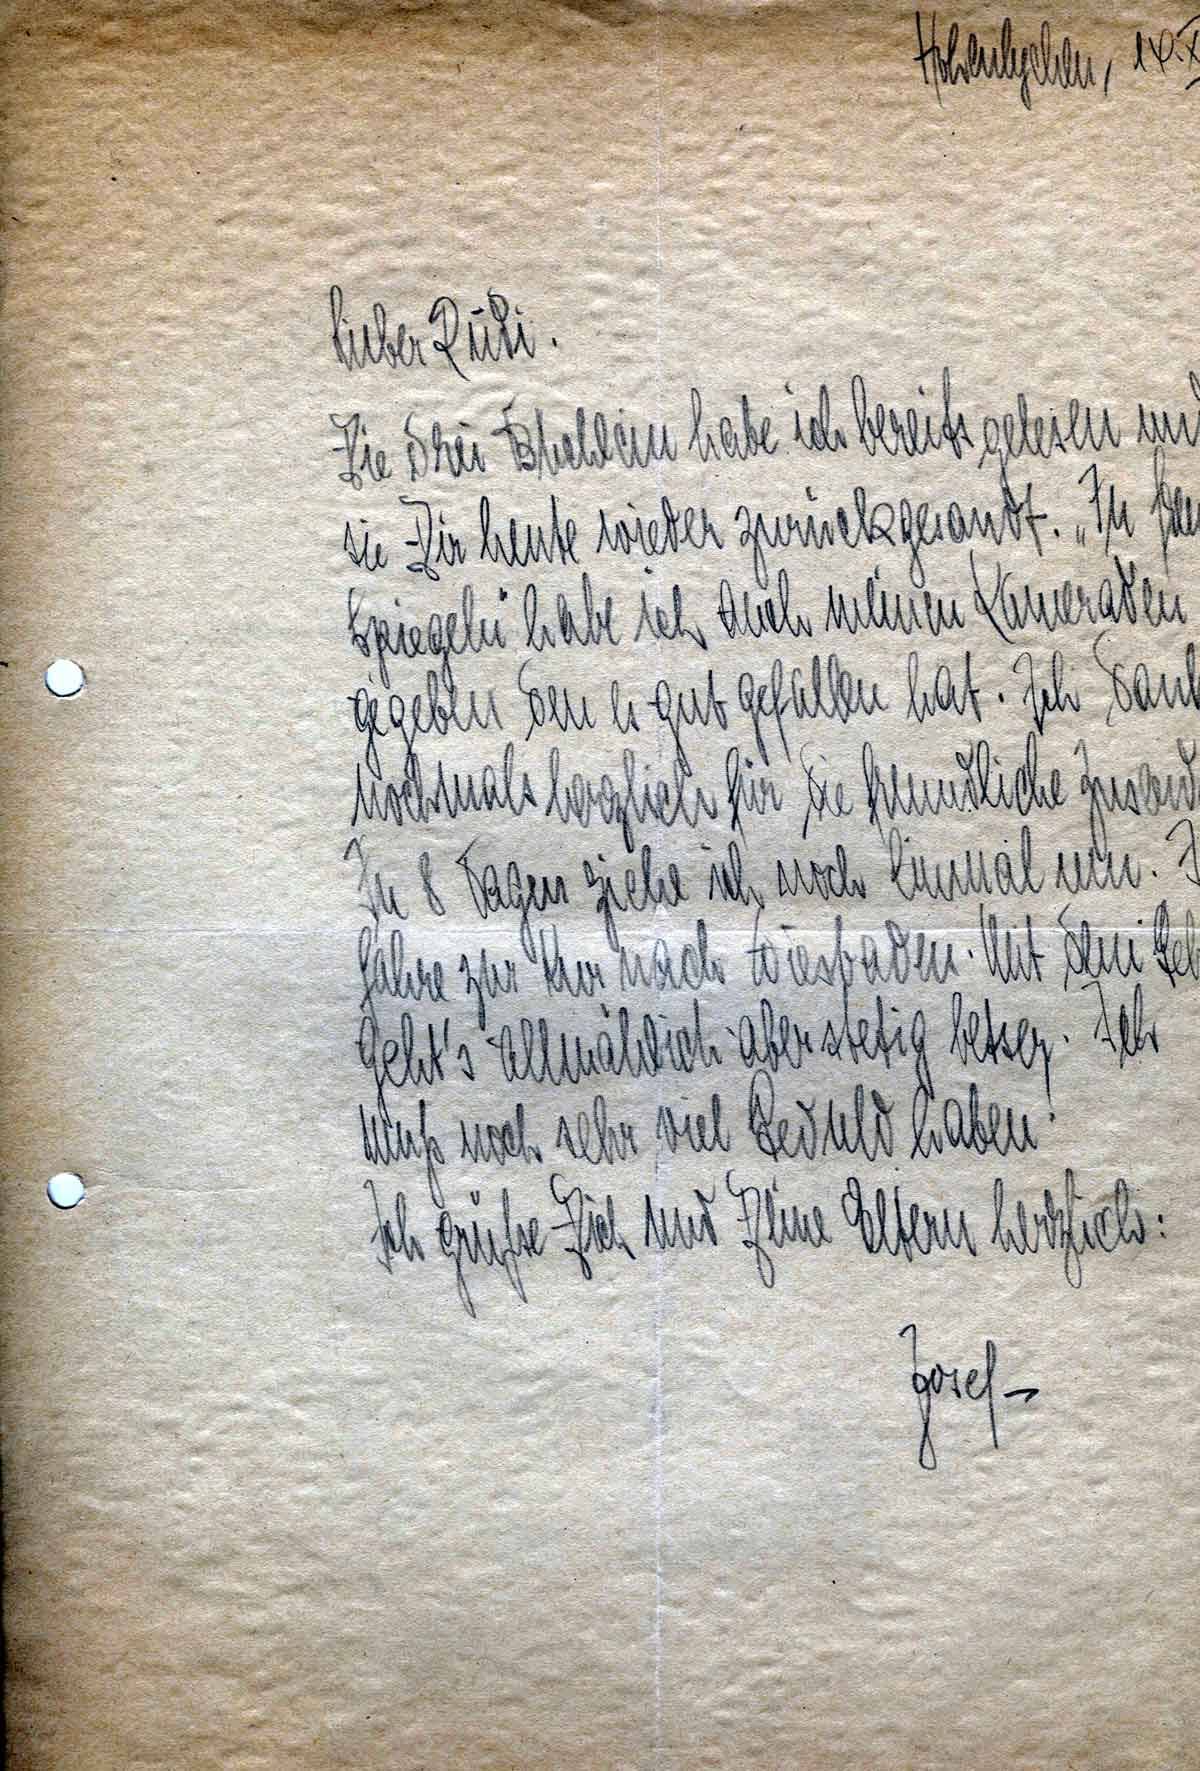 Hohenlychen, 14.X
Lieber Rudi.
Die drei habe ich bereits gelesen und
sie Dir heute wieder zurückgesandt. „In
Spiegeln" habe ich auch meinen Kameraden
gegeben den es gut gefallen hat. Ich dank
nochmals herzlich für die freundliche Zusend
In 8 Tagen ziehe ich noch einmal um. I
fahre zur Kur nach Wiesbaden. Mit dem Geh
geht's allmählich aber stetig besser. Ich
muß noch sehr viel Geduld haben.
Ich grüße Dich und Deine Eltern herzlich:
Josef